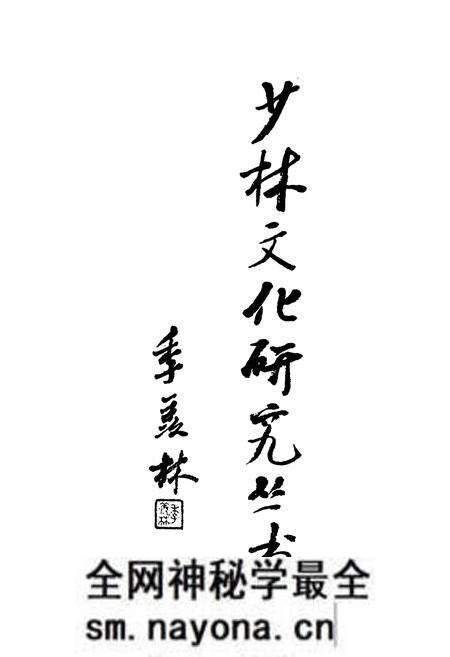 少林文化研究丛书
季羡林
季羡林
全网神秘学最全
sm.nayona.cn